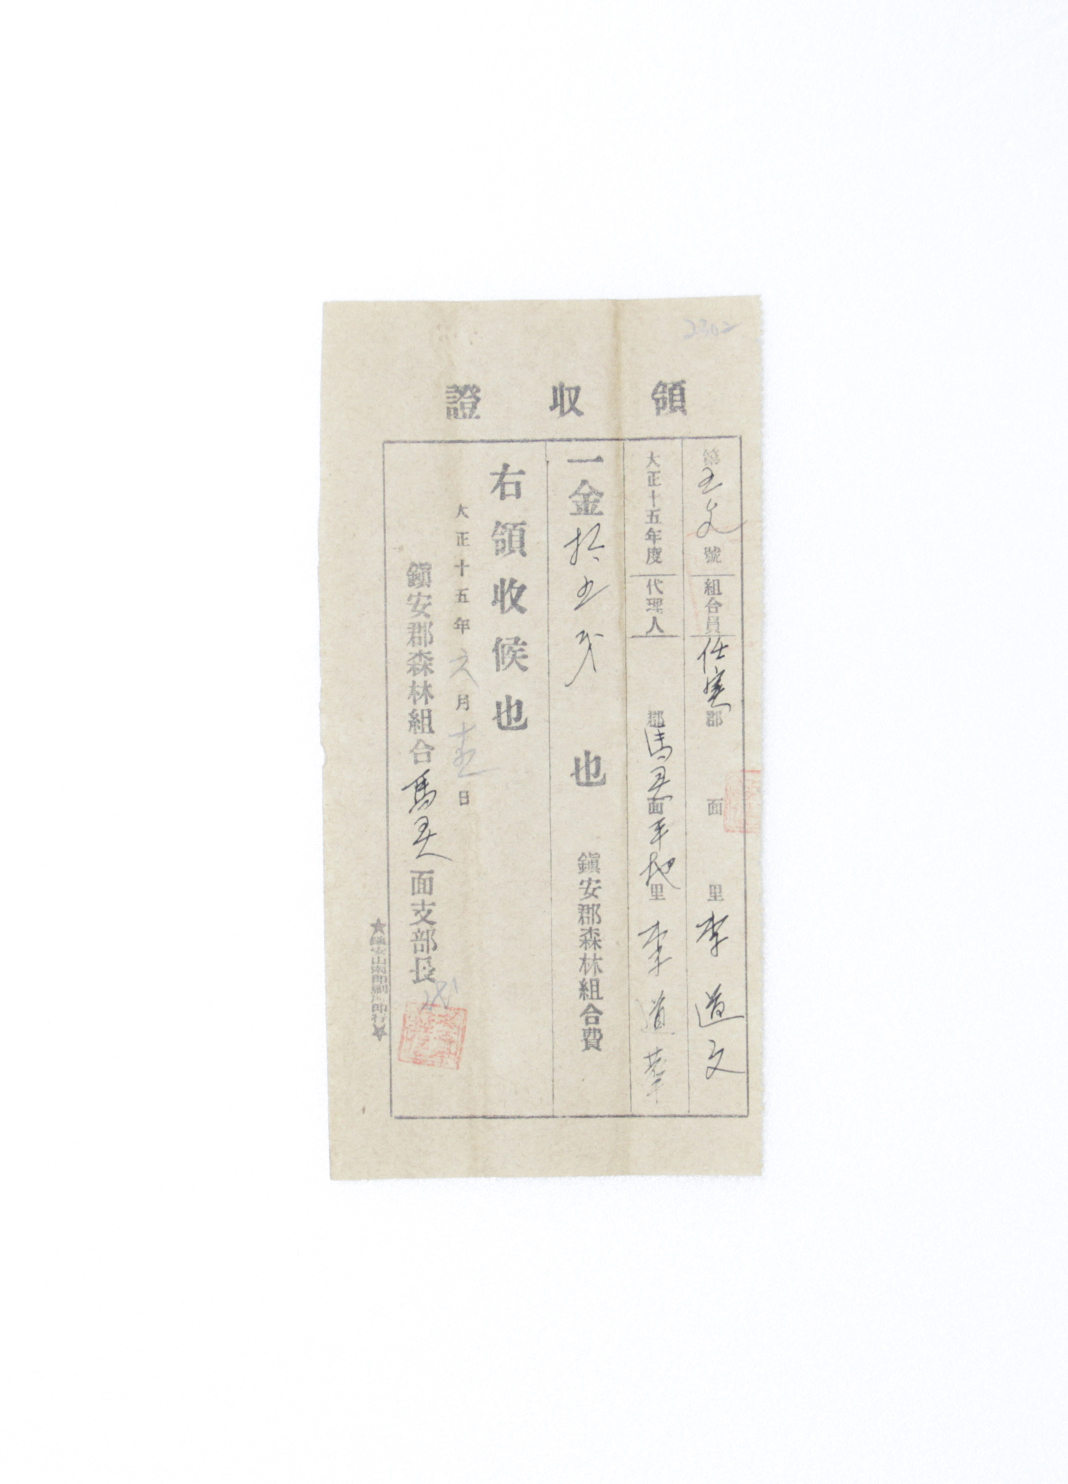 2302
領收證
第 號 組合員 任實郡 面 里 李道文
大正十五年度 代理人 郡馬灵面平地里 李道華
一金拾五戋也 鎭安郡森林組合費
右領收候也
大正十五年六月 日
鎭安郡森林組合馬灵面支部長